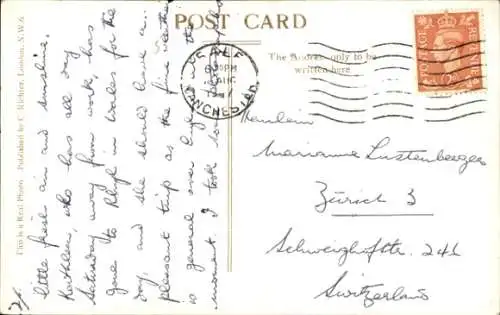 POST CARD
This is a Real Photo. Published by C. Richter, London, N.W.6
The Address only to be
written here.
SALE
PM
AUG
MANCHESTER
POSTAGE
REVENUE
2/.
little fresh air and sunshine.
Kathleen, who has all day
Saturday away from work, has
gone to Rhyl in Wales for the
day, and she should have a
pleasant trip as the fine weather
is general over
moment. I took
Fräulein
Marianne Lustenberger
Zürich 3
Schweighofstr. 241
Switzerland